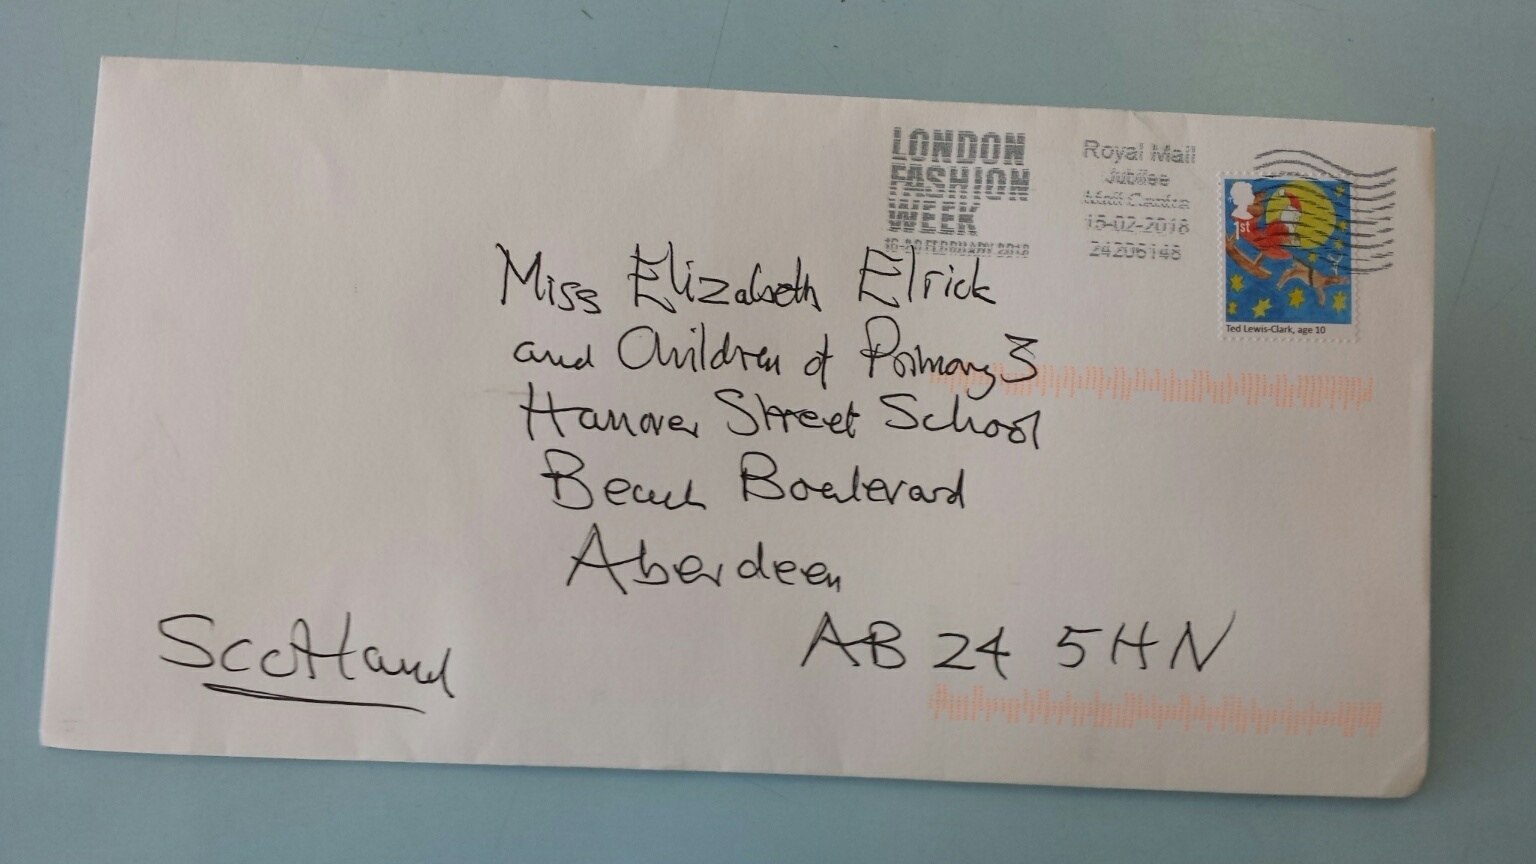 LONDON
FASHION
WEEK
16-20 FEBRUARY 2018
Royal Mail
Jubilee
Mail Centre
15-02-2018
24206148
1st
Ted Lewis-Clark, age 10
Miss Elizabeth Elrick
and Children of Primary 3
Hanover Street School
Beach Boulevard
Aberdeen
AB24 5HN
Scotland